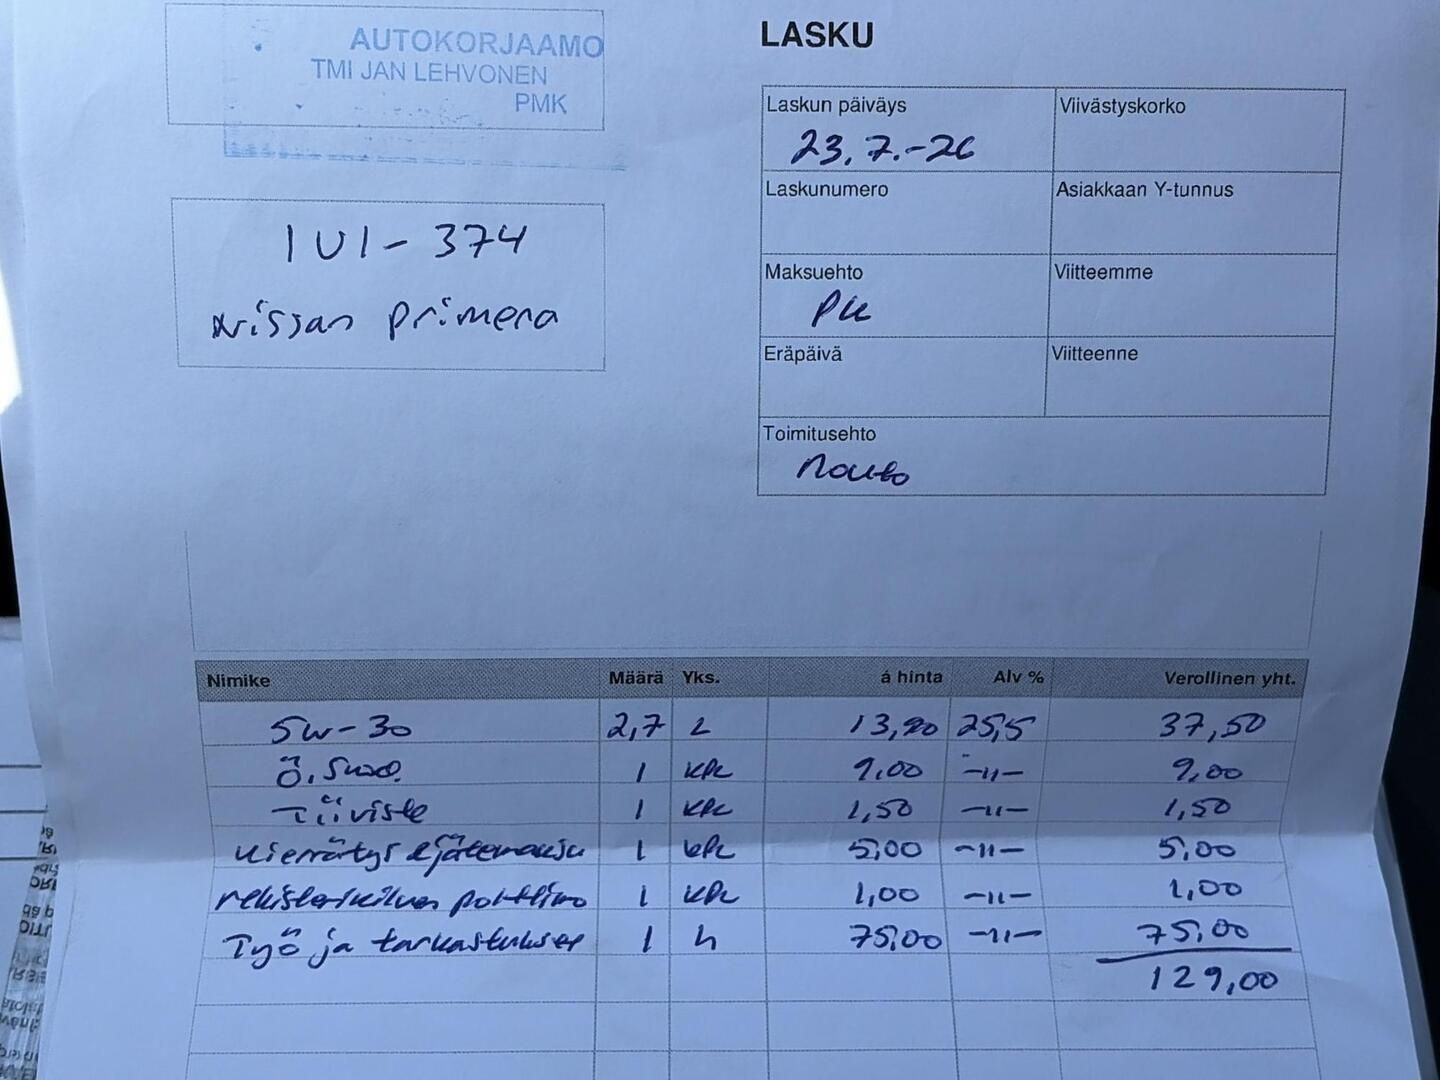 AUTOKORJAAMO
TMI JAN LEHVONEN
PMK
LASKU
Laskun päiväys
23.7.-26
Viivästyskorko
Laskunumero
Asiakkaan Y-tunnus
Maksuehto
PK
Viitteemme
Eräpäivä
Viitteenne
Toimitusehto
Nouto
IUI-374
Nissan primera
Nimike Määrä Yks. á hinta Alv % Verollinen yht.
5w-30 2,7 L 13,90 25,5 37,50
Ö.Suod. 1 kpl 9,00 -11- 9,00
Tiiviste 1 kpl 1,50 -11- 1,50
Kierrätys ejätemaksu 1 kpl 5,00 -11- 5,00
rekisterikilven polttimo 1 kpl 1,00 -11- 1,00
Työ ja tarkastukset 1 h 75,00 -11- 75,00
129,00